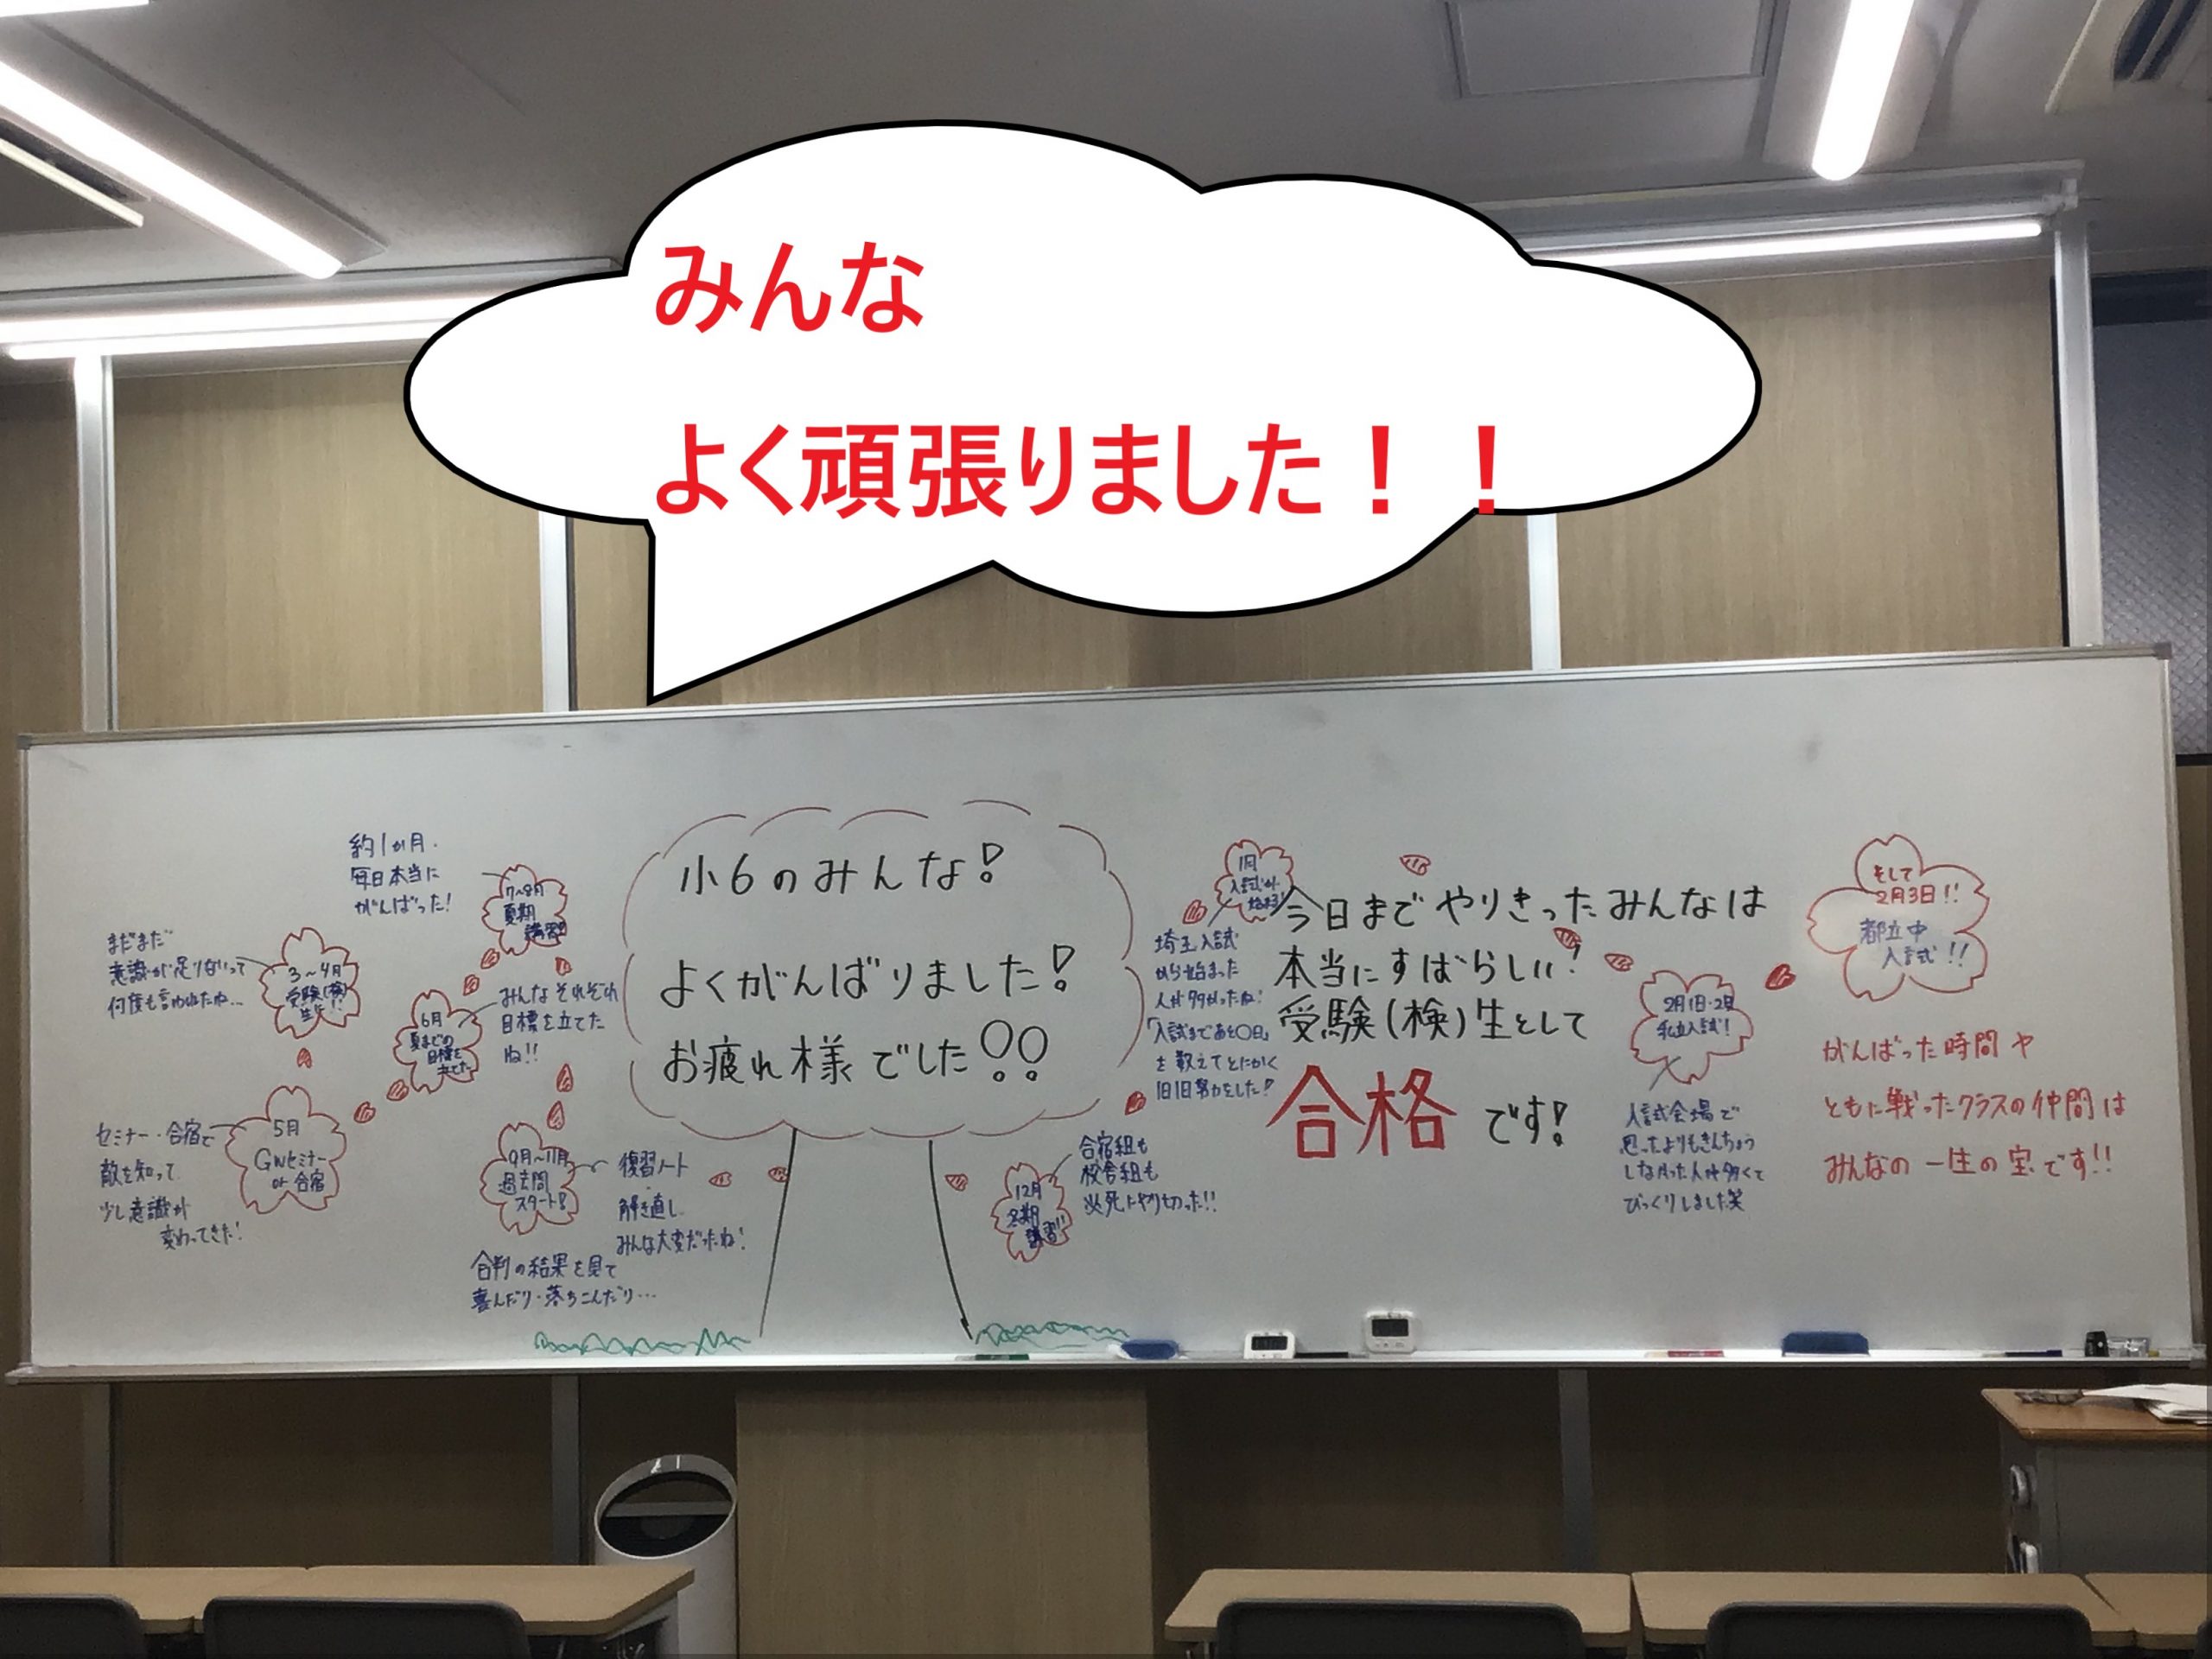 みんな
よく頑張りました！！
約1か月
毎日本当に
がんばった!
7~8月
夏期
講習!!
まだまだ
意識が足りないって
何度も言われたね…
3~4月
受験(検)
生に!!
6月
夏までの
目標を
立てた
みんなそれぞれ
目標を立てた
ね!!
セミナー・合宿で
敵を知って
少し意識が
変わってきた!
5月
GWセミナー
or 合宿
9月~11月
過去問
スタート!
復習ノート
解き直し
みんな大変だったね!
合判の結果を見て
喜んだり・落ちこんだり…
小6のみんな!
よくがんばりました!
お疲れ様でした!!
12月
冬期
講習!!
合宿組も
校舎組も
必死にやり切った!!
1月
入試が
始まる!
埼玉入試
から始まった
人が多かったね!
「入試まであと〇日」
を数えてとにかく
1日1日努力をした!
今日までやりきったみんなは
本当にすばらしい!
受験(検)生として
合格です!
2月1日・2日
私立入試!
入試会場で
思ったよりもきんちょう
しなかった人が多くて
びっくりしました笑
そして
2月3日!!
都立中
入試!!
がんばった時間や
ともに戦ったクラスの仲間は
みんなの一生の宝です!!